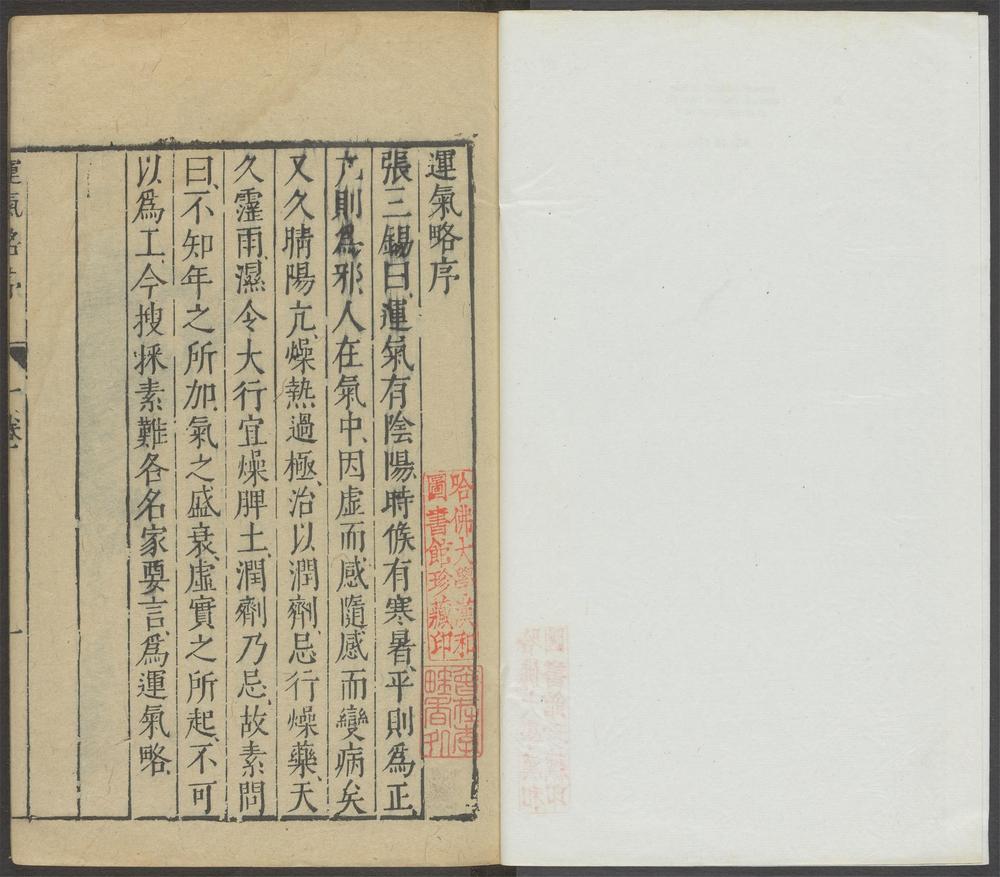 運氣略序
張三錫曰、運氣有陰陽、時候有寒暑、平則爲正、
亢則爲邪、人在氣中、因虛而感、隨感而變病矣
又久晴陽亢、燥熱過極、治以潤劑、忌行燥藥、天
久霪雨、濕令大行、宜燥脾土、潤劑乃忌、故素問
曰、不知年之所加、氣之盛衰、虛實之所起、不可
以爲工、今搜採素難各名家要言、爲運氣略、
運氣略序
一卷
一
哈佛大學漢和
圖書館珍藏印